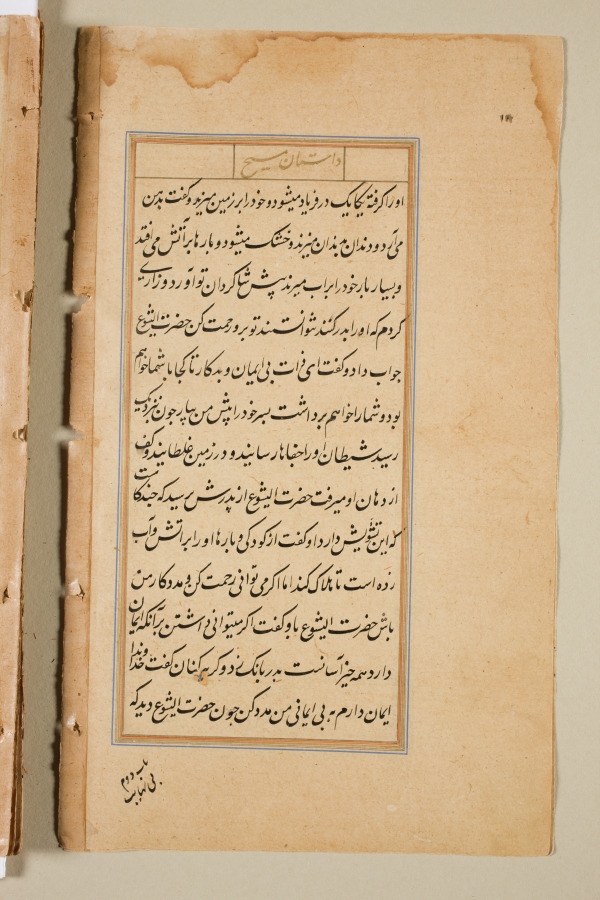 داستان مسیح
اورا کرفته یکایک در فریاد میشود و خودرا بر زمین میزند و کفت بدهن
می‌آرد و دندان بدندان میزند و خشک میشود و بارها بر آتش می افتد
و بسیار بار خودرا براب میزند پیش شاکردان تو آورد و زاری
کردم که اورا بدر کنند نتوانستند تو برو رحمت کن حضرت الیشوع
جواب داد و کفت ای ذات بی ایمان و بدکار تا کجا با شما خواهم
بود و شمارا خواهم برداشت پسر خودرا پیش من بیار چون نزدیک
رسید شیطان اورا جفاها رسانیند و در زمین غلطانیند و کف
از دهان او میرفت حضرت الیشوع از پدرش پرسید که چندگاست
که این تشویش دارد او کفت از کودکی و بارها اورا بر اتش و آب
زده است تا هلاک کند اما اکر می توانی رحمت کن و مددکار من
باش حضرت الیشوع باو کفت اکر میتوانی داشتن برآنکه ایمان
دارد همه چیز آسانست پدر بانک زد و کریه کنان کفت خداوندا
ایمان دارم به بی ایمانی من مدد کن چون حضرت الیشوع دید که
باب دوم